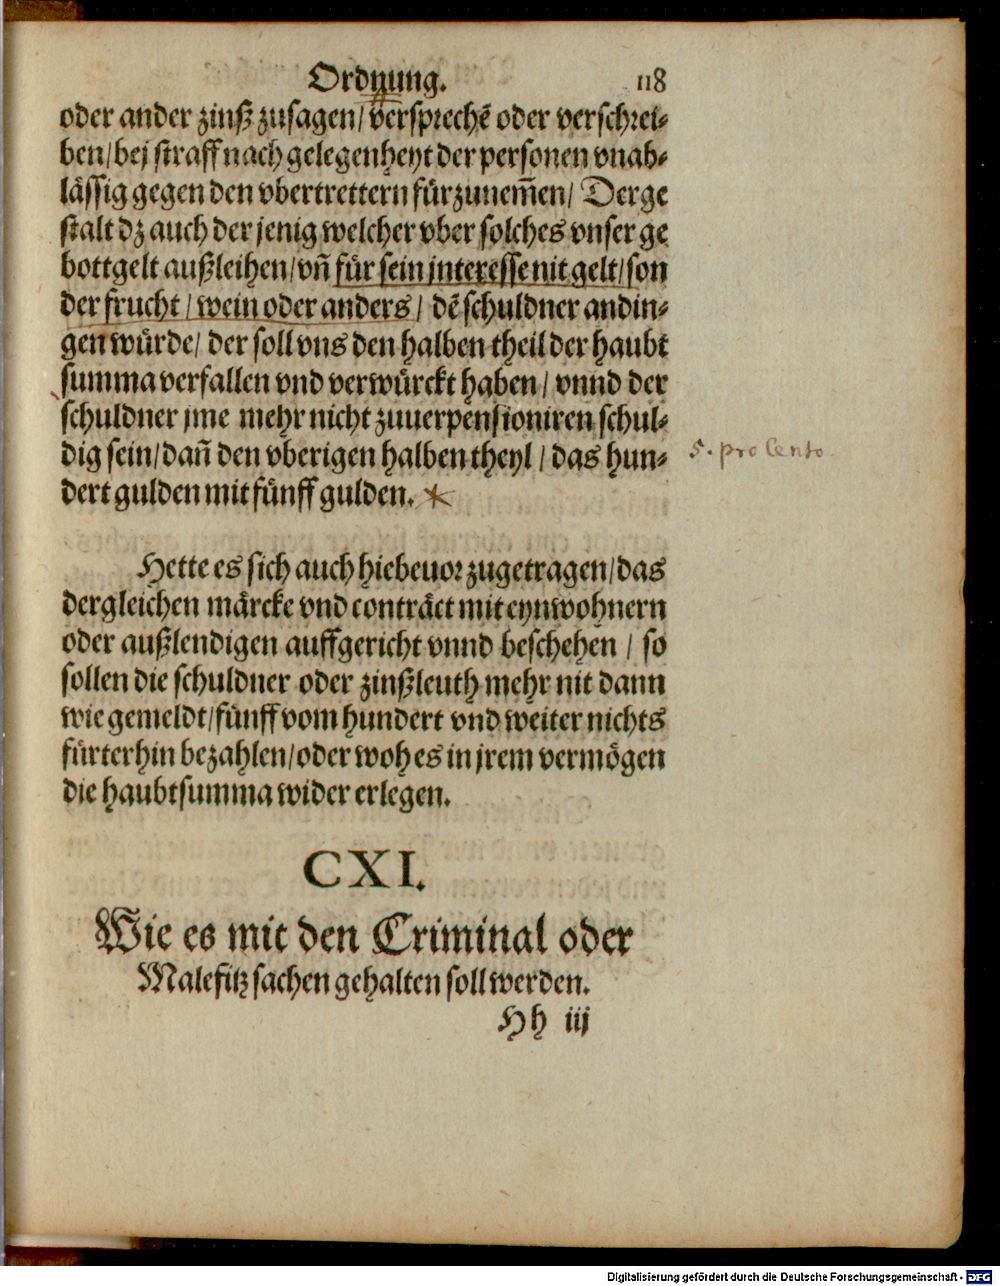 Ordnung. 118
oder ander zinß zusagen/ versprechē oder verschrei-
ben/ bej straff nach gelegenheyt der personen vnab-
lässig gegen den vbertrettern fürzunem̄en/ Derge
stalt dz auch der jenig welcher vber solches vnser ge
bottgelt außleihen/ vn̄ für sein jnteresse nit gelt/ son
der frucht/ wein oder anders/ dē schuldner andin-
gen würde/ der soll vns den halben theil der haubt
summa verfallen vnd verwürckt haben/ vnnd der
schuldner jme mehr nicht zuuerpensioniren schul-
dig sein/ dan̄ den vberigen halben theyl/ das hun-
dert gulden mit fünff gulden. *
5. pro Cento.
Hette es sich auch hiebeuor zugetragen/ das
dergleichen märcke vnd conträct mit eynwohnern
oder außlendigen auffgericht vnnd beschehen/ so
sollen die schuldner oder zinßleuth mehr nit dann
wie gemeldt/ fünff vom hundert vnd weiter nichts
fürterhin bezahlen/ oder woh es in jrem vermögen
die haubtsumma wider erlegen.
CXI.
Wie es mit den Criminal oder
Malefitz sachen gehalten soll werden.
Hh iij
Digitalisierung gefördert durch die Deutsche Forschungsgemeinschaft - DFG